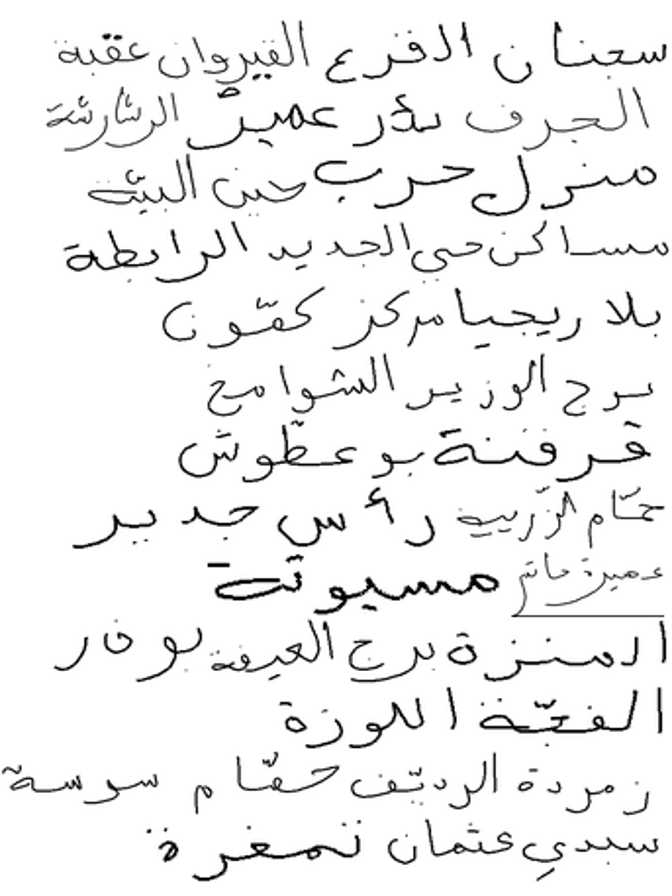 سعنان القرع القيروان عقبة
الجرف بئر عميّر الشارشة
منزل حرب حين البيّتة
مساكن حي الجديد الرابطة
بلاريجيا مركز كمّون
برج الوزير الشوامخ
قرقنة بوعطّوش
حمّام الزّريبة رأس جدير
عميرة حاتم مسيوتة
المنزة برج العيفة بوفار
الفجّة اللوزة
زمردة الرديّف حمّام سوسة
سيدي عثمان تمغرة